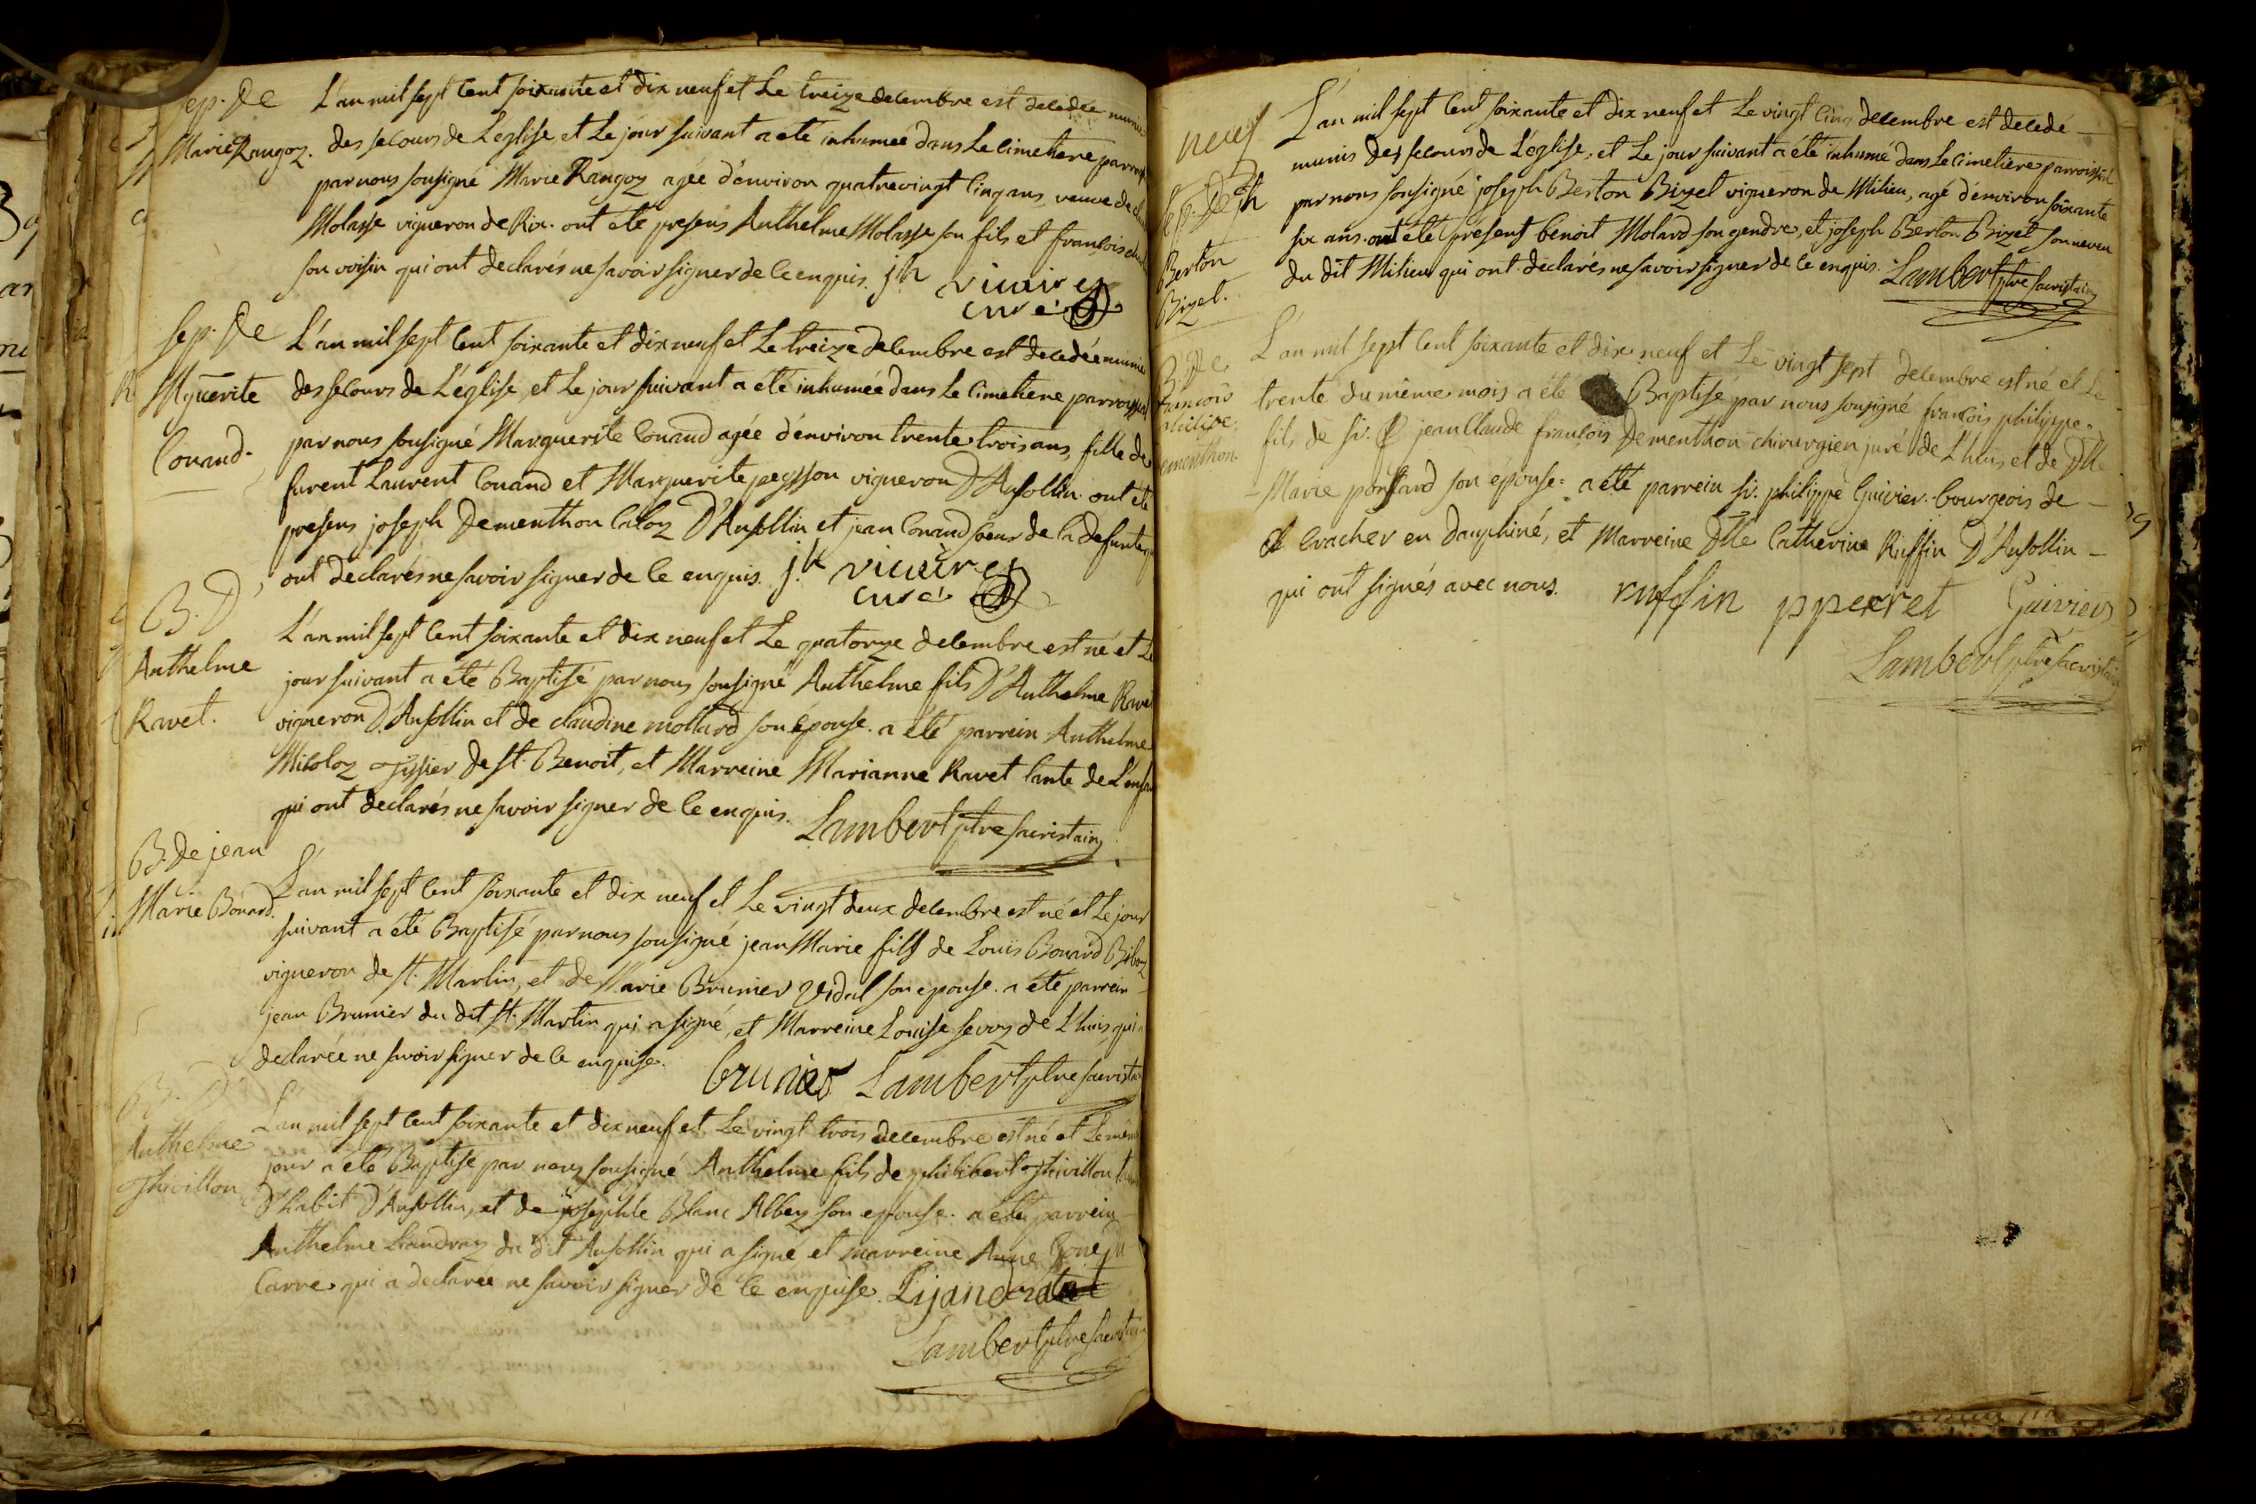 Sep. De
Marie Rangoz.
L'an mil sept Cent soixante et dix neuf et Le treize decembre est decedée munie
des secours de L'eglise et Le jour suivant a été inhumée dans Le cimetiere parroiss
par nous sousigné Marie Rangoz agée d'environ quatrevingt Cinq ans, veuve de
Molasse vigneron de Rix. ont été presens Anthelme Molasse son fils et françois
son voisin qui ont declarés ne savoir signer de ce enquis. jh vicaire
curé
Sep. De
Mgũerite
Conand.
L'an mil sept Cent soixante et dix neuf et Le treize decembre est decedée munie
des secours de L'église, et Le jour suivant a été inhumée dans Le cimetiere parroissial
par nous sousigné Marguerite Conand agée d'environ trente trois ans, fille de
furent Laurent Conand et Marguerite peysson vigneron D'Ansollin ont été
presens joseph Dementhon Caloz D'Ansollin et jean Conand soeur de la defunte
ont declarés ne savoir signer de Ce enquis. jh vicaire
curé
B. D'
Anthelme
Ravet.
L'an mil sept Cent soixante et dix neuf et Le quatorze decembre est né et Le
jour suivant a été Baptisé par nous sousigné Anthelme fils D'Anthelme Ravet
vigneron D'Ansollin et de claudine mollard son épouse. a été parrein Anthelme
Micoloz Tissier de st. Benoit, et Marreine Marianne Ravet tante de L'enfa
qui ont declarés ne savoir signer de Ce enquis. Lambert ptre sacristain
B. De jean
Marie Bonard.
L'an mil sept Cent soixante et dix neuf et Le vingt deux decembre est né et Le jour
suivant a été Baptisé par nous sousigné jean Marie fils de Louis Bonard
vigneron de st. Martin, et de Marie Brunier Vidal son epouse. a été parrein
jean Brunier du dit st. Martin qui a signé, et Marreine Louise Sevoz de L'huis, qui
declarée ne savoir signer de Ce enquise. brunier Lambert ptre sacrista
B. D'
Anthelme
Thivillon
L'an mil sept Cent soixante et dix neuf et Le vingt trois decembre est né et Le mem
jour a été Baptisé par nous sousigné Anthelme fils de philibert Thivillon
D'habit D'Ansollin, et de josephte Blanc Albey son epouse. a été parrein
Anthelme du dit Ansollin qui a signé et marreine Anne
Carre qui a declarée ne savoir signer de Ce enquise.
Lambert ptre sacristain
neuf
Sep. De jh
Berton
Bizel.
L'an mil sept Cent soixante et dix neuf et Le vingt Cinq decembre est decedé
munis des secours de L'église, et Le jour suivant a été inhumé dans Le cimetiere parroissial
par nous sousigné joseph Berton Bizel vigneron de Milieu, agé d'environ soixante
six ans. ont été présens benoit Molard son gendre, et joseph Berton Bizel son neveu
du dit Milieu qui ont declarés ne savoir signer de Ce enquis. Lambert ptre sacristain
B. De
francois
philipe
ementhon
L'an mil sept Cent soixante et dix neuf et Le vingt sept decembre est né et Le
trente du même mois a été Baptisé par nous sousigné françois philippe
fils de sr. jean Claude françois Dementhon chirurgien juré de L'huis et de Dlle
Marie ponsard son épouse. a été parrein sr. philippe Guivier bourgeois de
Cracher en Dauphiné, et Marreine Dlle Catherine Ruffin D'Ansollin
qui ont signés avec nous. ruffin pperret Guivier
Lambert ptre sacristain